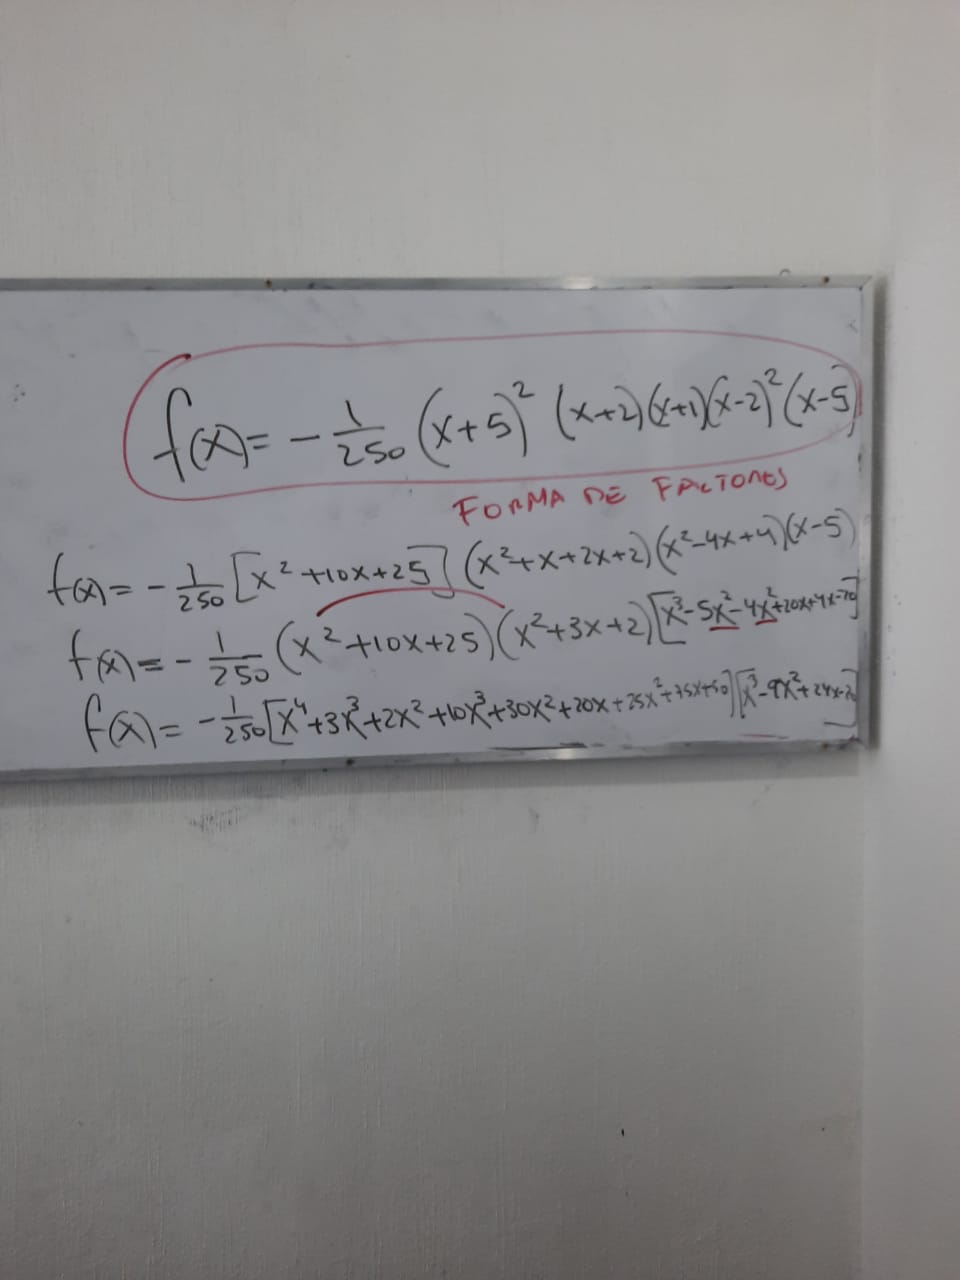 f(x) = - 1/250 (x+5)² (x+2)(x+1)(x-2)² (x-5)
FORMA DE FACTORES
f(x) = - 1/250 [x² + 10x + 25] (x² + x + 2x + 2) (x² - 4x + 4) (x - 5)
f(x) = - 1/250 (x² + 10x + 25) (x² + 3x + 2) [x³ - 5x² - 4x² + 20x + 4x - 20]
f(x) = - 1/250 [x⁴ + 3x³ + 2x² + 10x³ + 30x² + 20x + 25x² + 75x + 50] [x³ - 9x² + 24x - 20]